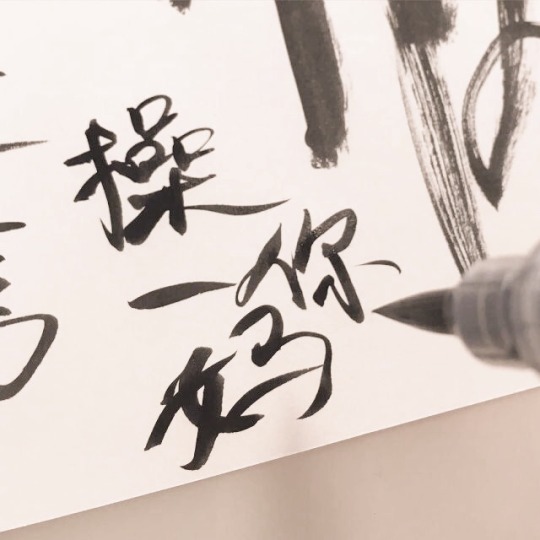 操
你
妈